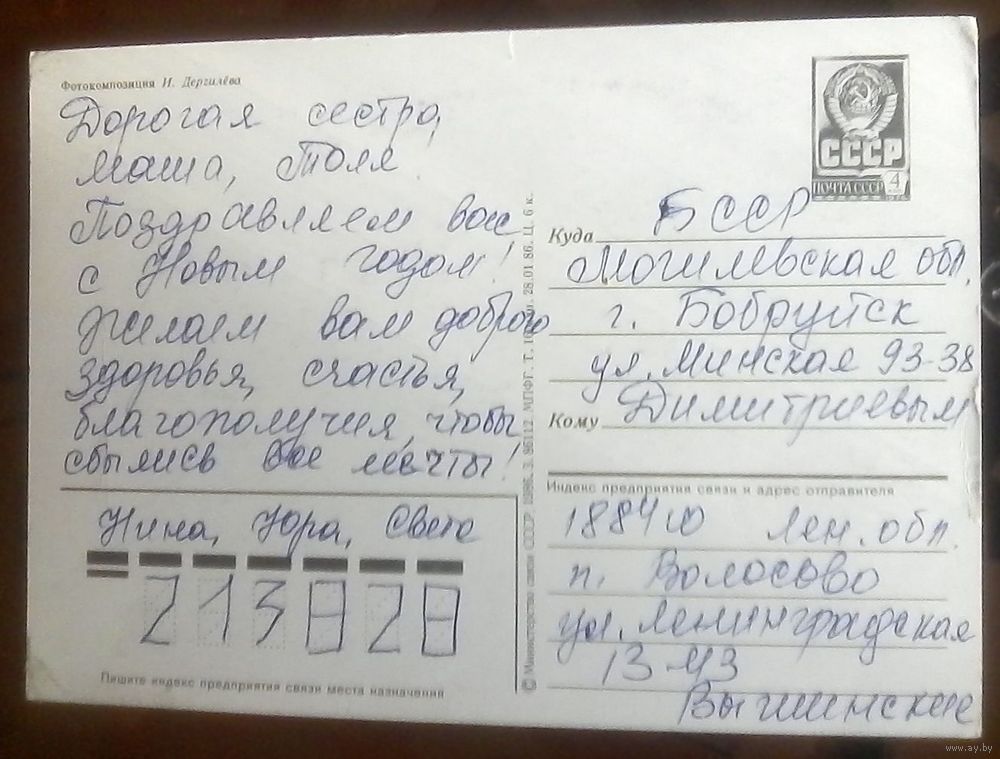 Фотокомпозиция И. Дергилёва
Дорогая сестра,
Маша, Толя
Поздравляем вас
с Новым годом!
Желаем вам доброго
здоровья, счастья,
благополучия, чтобы
сбылись все мечты!
Нина, Юра, Света
213828
Пишите индекс предприятия связи места назначения
© Министерство связи СССР. 1986. З. 86112. МПФГ. Т. 28.01 86. Ц. 6 к.
СССР
ПОЧТА СССР 4
Куда БССР
Могилевская обл.
г. Бобруйск
ул. Минская 93-38
Кому Димитриевым
Индекс предприятия связи и адрес отправителя
188410 Лен. обл.
п. Волосово
ул. Ленинградская
13-43
Вышинские
www.ay.by